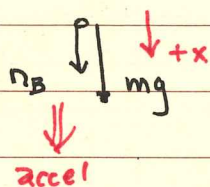 +x
n_B mg
accel